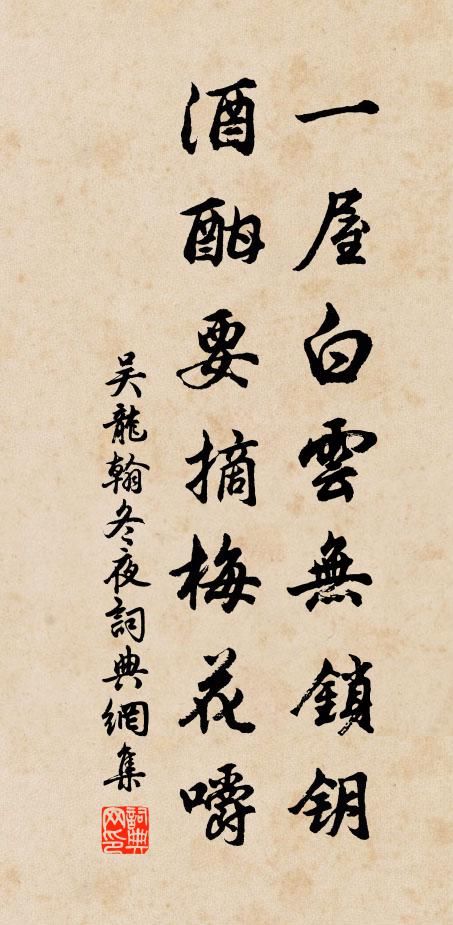 一屋白雲無鎖鈅
酒酣要摘梅花嚼
吳龍翰冬夜詞典網集
詞典网印